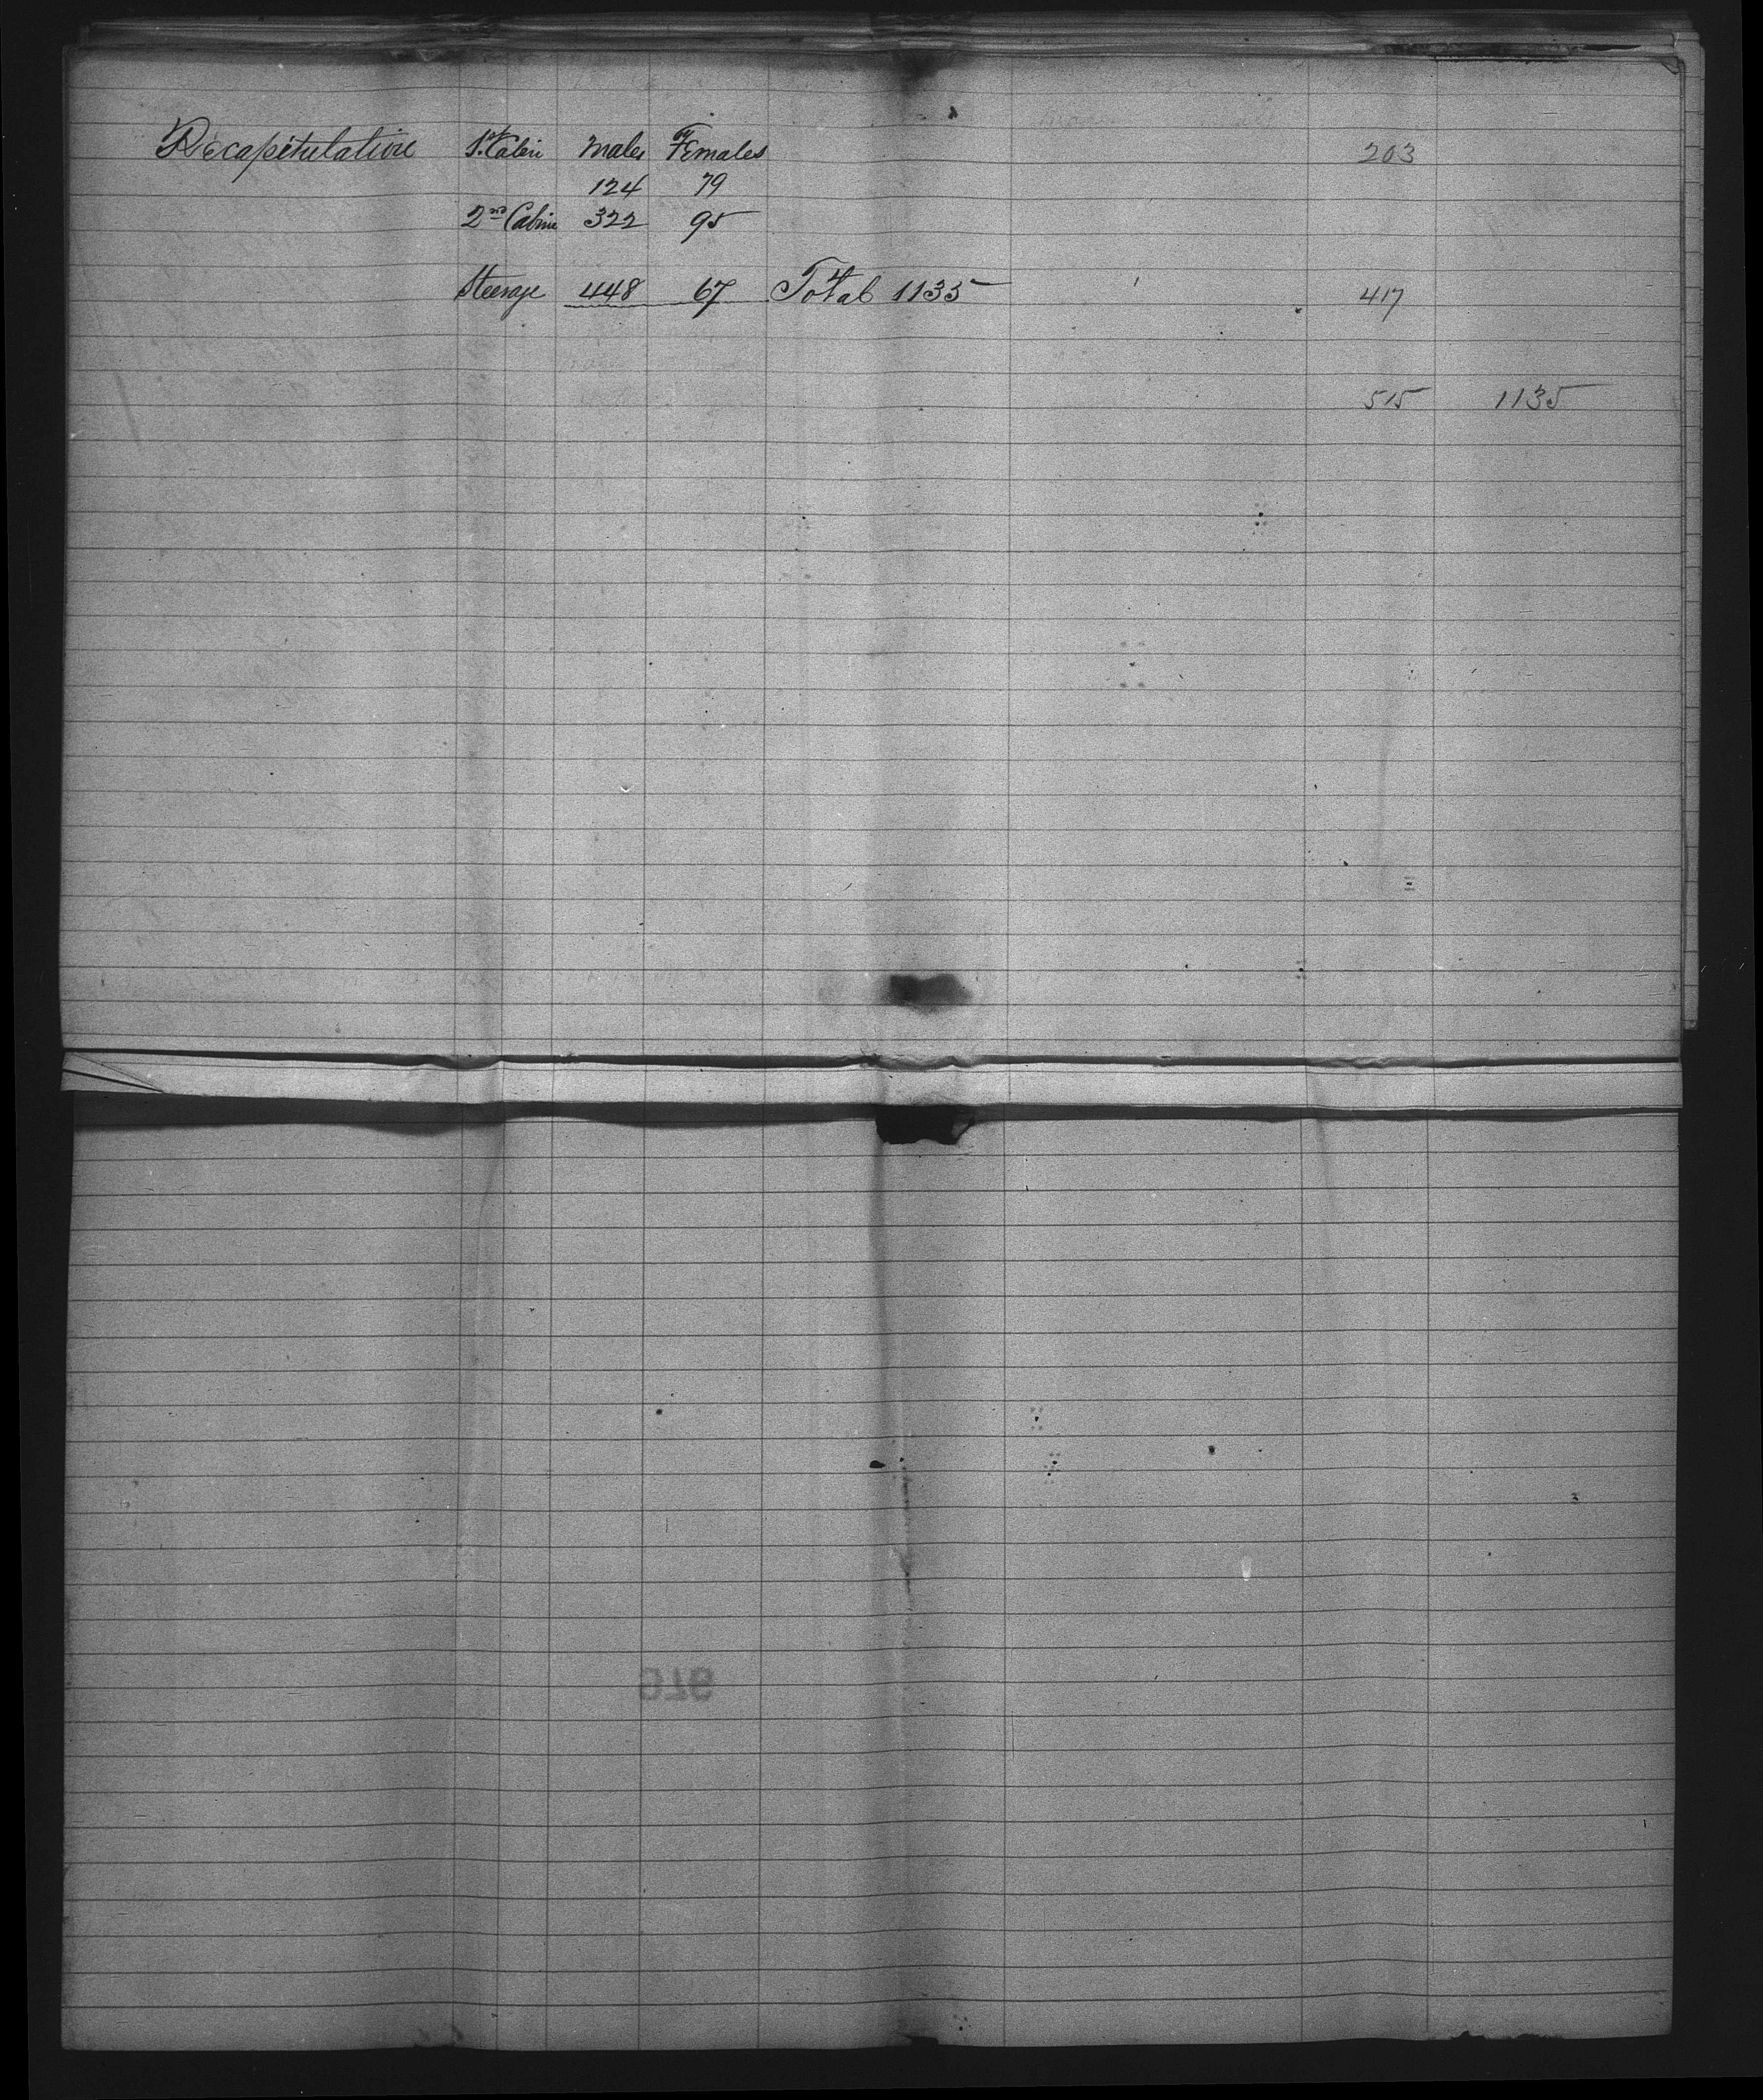 Recapitulation 1st Cabin Males Females 203
124 79
2nd Cabin 322 95
Steerage 448 67 Total 1135 417
515 1135
976